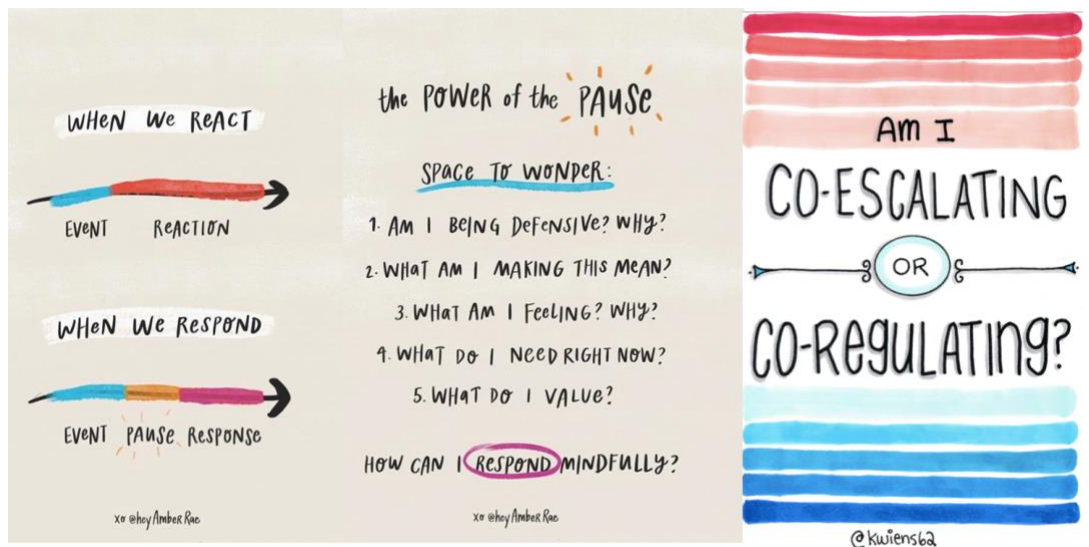 WHEN WE REACT
EVENT REACTION
WHEN WE RESPOND
EVENT PAUSE RESPONSE
xo @heyAmberRae
the POWER of the PAUSE
SPACE TO WONDER:
1. AM I BEING DEFENSIVE? WHY?
2. WHAT AM I MAKING THIS MEAN?
3. WHAT AM I FEELING? WHY?
4. WHAT DO I NEED RIGHT NOW?
5. WHAT DO I VALUE?
HOW CAN I RESPOND MINDFULLY?
xo @heyAmberRae
Am I
CO-ESCALATING
OR
CO-REGULATING?
@kwiens62